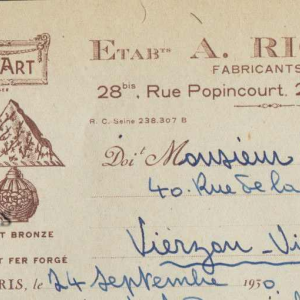 ART
ETABTS A. RI
FABRICANTS
28bis, Rue Popincourt, 2
R. C. Seine 238.307 B
Doit Monsieur
40. Rue de la
T BRONZE
Vierzon-Vi
T FER FORGÉ
RIS, le 24 Septembre 1950